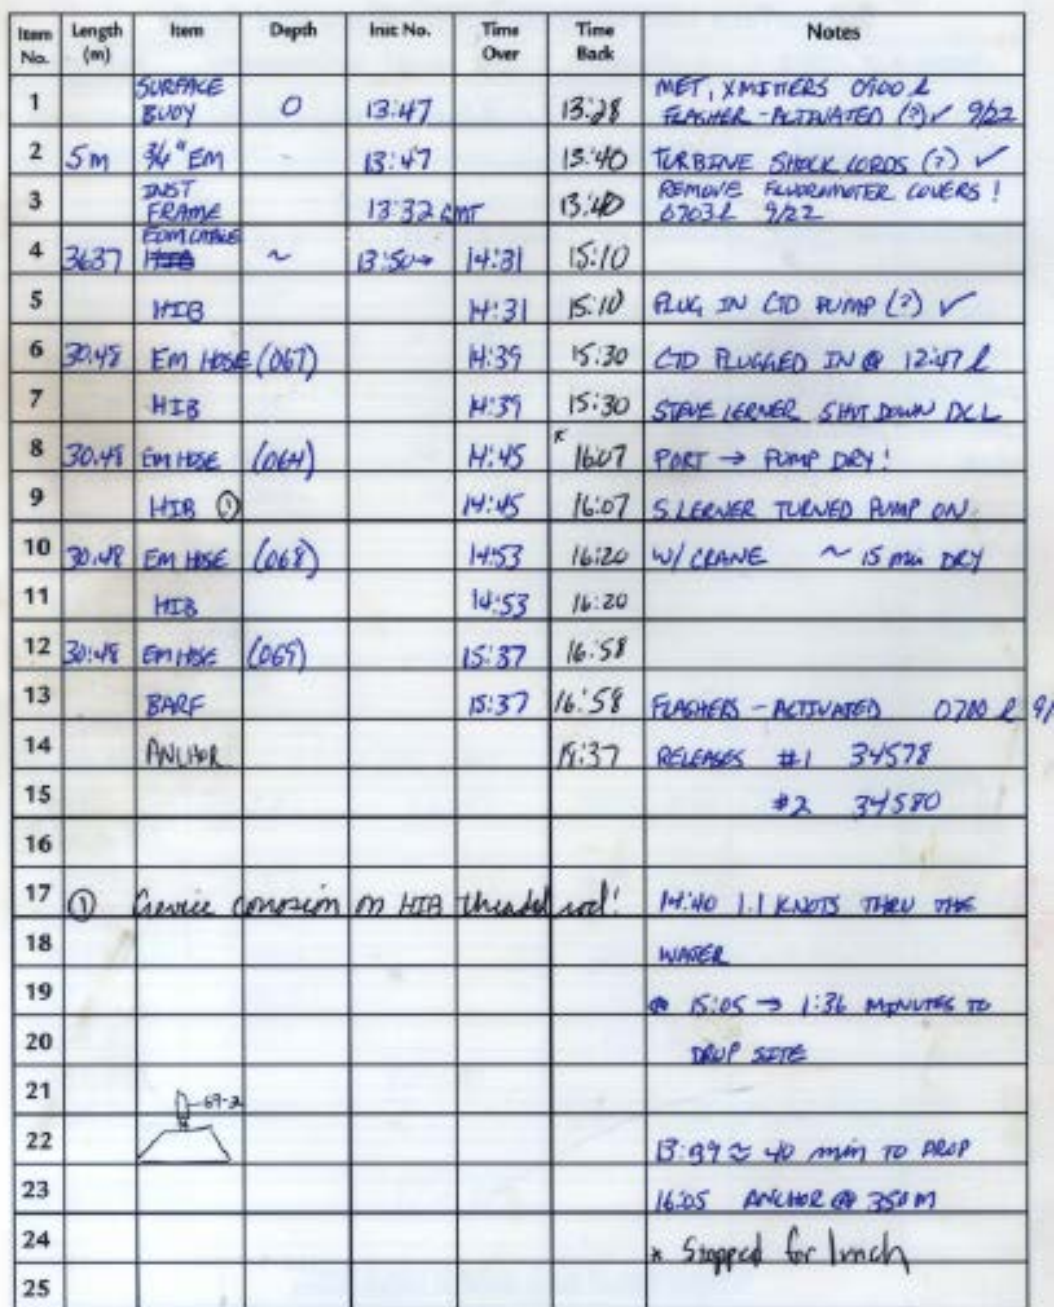 Item No. Length (m) Item Depth Inst No. Time Over Time Back Notes
1 SURFACE BUOY 0 13:47 13:28 MET, XMITTERS 0700 L
FLASHER - ACTIVATED (?) ✓ 9/22
2 5m 3/4" EM - 13:47 13:40 TURBINE SHOCK CORDS (?) ✓
3 INST FRAME 13:32 GMT 13:40 REMOVE FLUOROMETER COVERS!
0703 L 9/22
4 3637 EOM CABLE ~ 13:50→ 14:31 15:10
5 HIB 14:31 15:10 PLUG IN CTD PUMP (?) ✓
6 30.48 EM HOSE (067) 14:39 15:30 CTD PLUGGED IN @ 12:47 L
7 HIB 14:39 15:30 STEVE LERNER SHUT DOWN DCL
8 30.48 EM HOSE (064) 14:45 * 16:07 PORT → PUMP DRY!
9 HIB ① 14:45 16:07 S LERNER TURNED PUMP ON
10 30.48 EM HOSE (068) 14:53 16:20 W/ CRANE ~ 15 min DRY
11 HIB 14:53 16:20
12 30.48 EM HOSE (069) 15:37 16:58
13 BARF 15:37 16:58 FLASHERS - ACTIVATED 0700 L 9/
14 ANCHOR 19:37 RELEASES #1 34578
15 #2 34580
16
17 ① Crevice corrosion on HIB threaded rod! 14:40 1.1 KNOTS THRU THE
18 WATER
19 @ 15:05 → 1:36 MINUTES TO
20 DROP SITE
21 69-2
22 ≈ 40 min TO DROP
23 16:05 ANCHOR @ 350 M
24 * Stopped for lunch
25